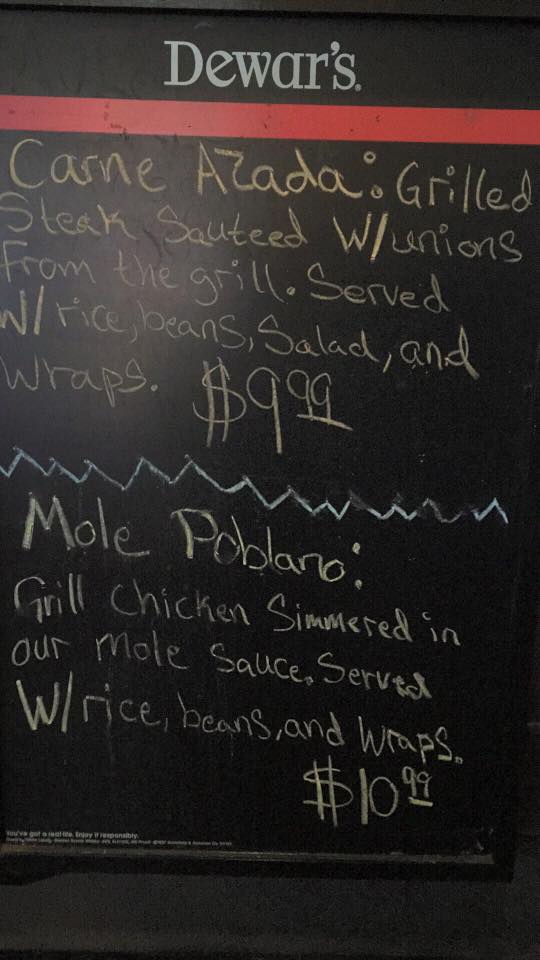 Dewar's.
Carne Azada: Grilled
Steak Sauteed W/unions
From the grill. Served
W/rice, beans, Salad, and
Wraps. $9.99
Mole Poblano:
Grill chicken Simmered in
our mole sauce. Served
W/rice, beans, and Wraps.
$10.99
You've got a real life. Enjoy it responsibly.